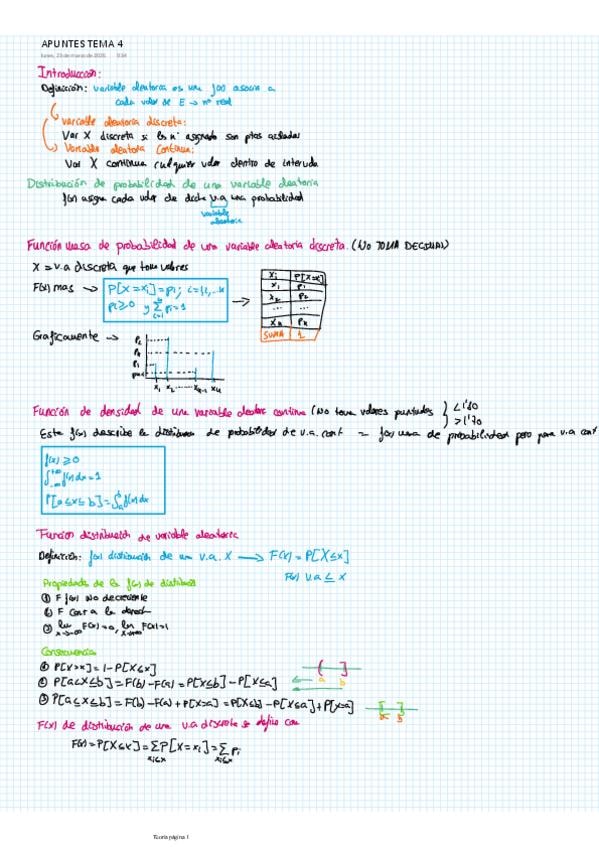 APUNTES TEMA 4
lunes, 23 de marzo de 2026 0:34
Introducción:
Definición: variable aleatoria es una f(x) asocia a
cada valor de E → nº real
variable aleatoria discreta:
Var X discreta si los nº asignado son ptos aislados
Variable aleatora Continua:
Var X continua culquier valor dentro de intervalo
Distribución de probabilidad de una variable aleatoria
f(x) asigna cada valor de dicha v.a una probabilidad
variable
aleatora
Función masa de probabilidad de una variable aleatoria discreta. (NO TOMA DECIMAL)
X = v.a discreta que toma valores
F(x) mas → P[X=xi]=pi; i=1,...k
pi≥0 y Σ pi=1
xi P[X=xi]
x1 p1
x2 p2
... ...
xk pk
SUMA 1
Graficamente →
x1 x2 ...... xk-1 xk
Función de densidad de una variable aleator continua (No toma valores puntuales } <1'70
>1'70
Esta f(x) describe la distribución de probabilidad de v.a. cont = f(x) masa de probabilidad pero para v.a cont
f(x) ≥0
∫-∞+∞ f(x)dx=1
P[a≤x≤b]=∫ab f(x)dx
Funcion distribución de variable aleatoria
Definición: f(x) distribución de una v.a. X → F(x) = P[X≤x]
F(x) v.a ≤ x
Propiedades de la f(x) de distribución
① F f(x) No decreciente
② F Cont a la derech
③ lim x→-∞ F(x)=0, lim x→+∞ F(x)=1
Consecuencia
① P[X>x]=1-P[X≤x]
② P[a<X≤b]=F(b)-F(a)=P[X≤b]-P[X≤a]
a b
③ P[a≤X≤b]=F(b)-F(a)+P[X=a]=P[X≤b]-P[X≤a]+P[X=a]
F(x) de distribución de una v.a discreta se define com
F(x)=P[X≤x]=Σ xi≤x P[X=xi]=Σ xi≤x pi
Teoría página 1